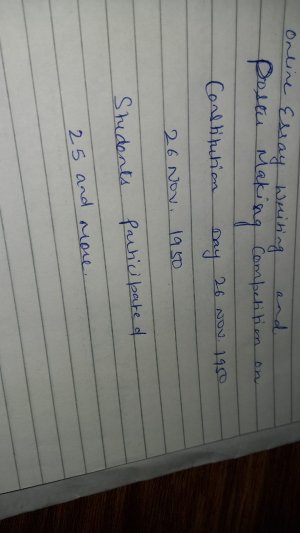 Online Essay Writing and
Poster Making Competition on
Constitution Day 26 Nov. 1950
26 Nov. 1950
Students Participated
25 and More.